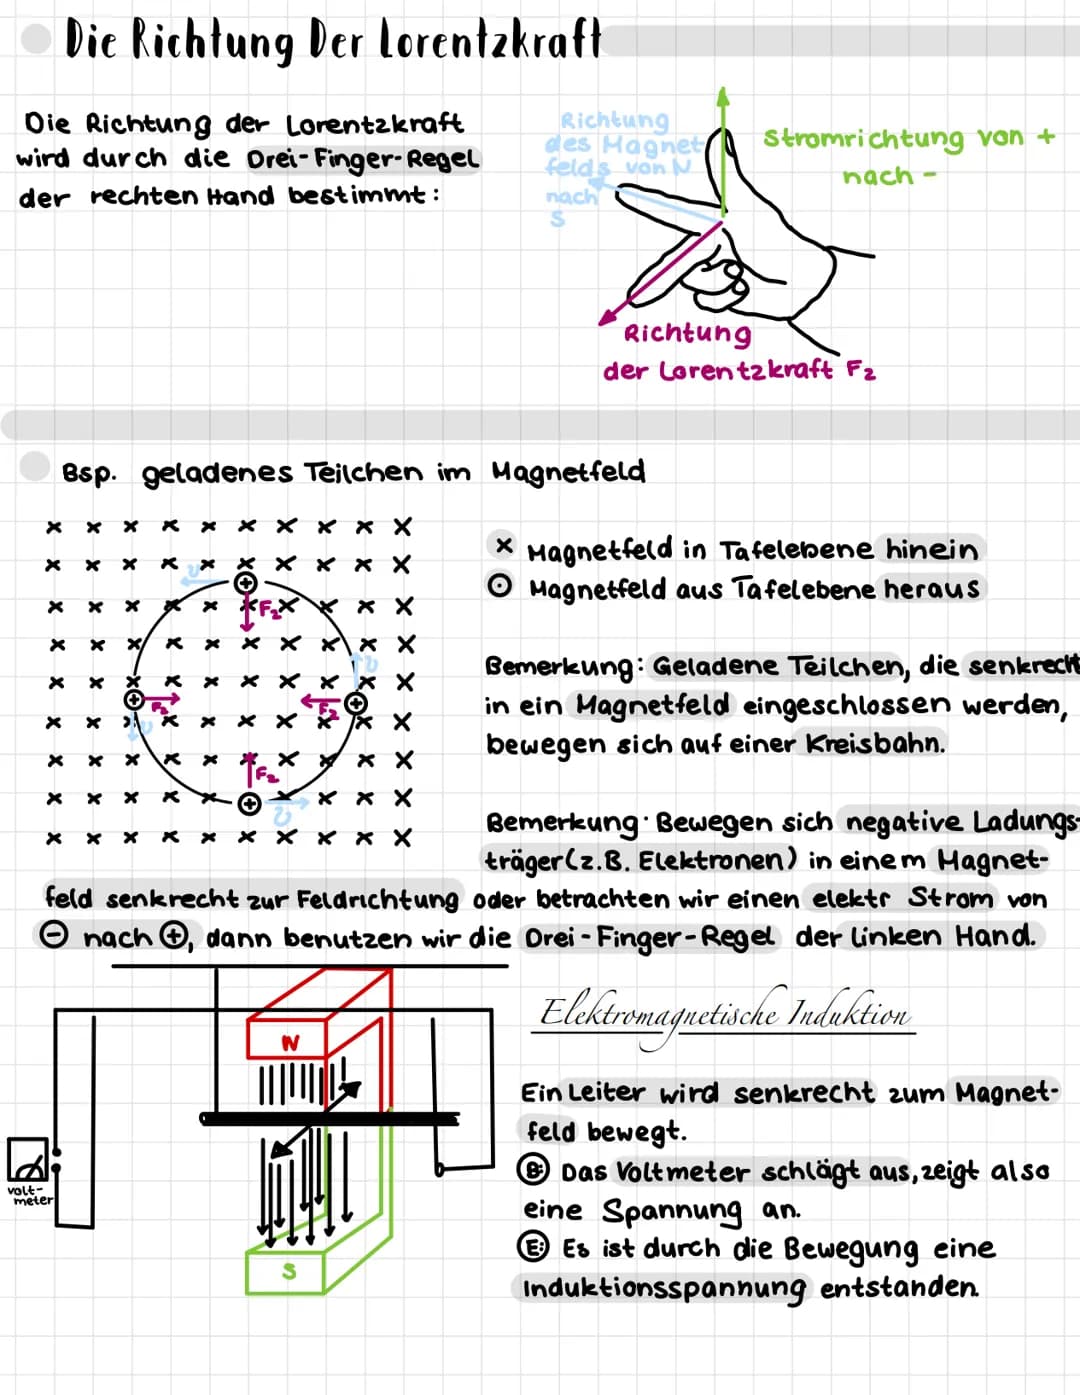 Die Richtung Der Lorentzkraft
Die Richtung der Lorentzkraft
wird durch die Drei-Finger-Regel
der rechten Hand bestimmt:
Richtung
des Magnet
felds von N
nach
S
Stromrichtung von +
nach -
Richtung
der Lorentzkraft F₂
Bsp. geladenes Teilchen im Magnetfeld
x x x x x x x x x x
x x x x x x x x x x
x x x x x x x x x
x x x x x x x x x x
x x x x x x x x x x
x x x x x x x x x
x x x x x x x x x
x x x x x x x x x
x x x x x x x x x x
v
+
F₂
v
+
F₂
F₂
+
v
F₂
+
v
x Magnetfeld in Tafelebene hinein
⊙ Magnetfeld aus Tafelebene heraus
Bemerkung: Geladene Teilchen, die senkrecht
in ein Magnetfeld eingeschlossen werden,
bewegen sich auf einer Kreisbahn.
Bemerkung: Bewegen sich negative Ladungs-
träger (z.B. Elektronen) in einem Magnet-
feld senkrecht zur Feldrichtung oder betrachten wir einen elektr Strom von
⊖ nach ⊕, dann benutzen wir die Drei-Finger-Regel der linken Hand.
N
S
volt-
meter
Elektromagnetische Induktion
Ein Leiter wird senkrecht zum Magnet-
feld bewegt.
B: Das Voltmeter schlägt aus, zeigt also
eine Spannung an.
E: Es ist durch die Bewegung eine
Induktionsspannung entstanden.